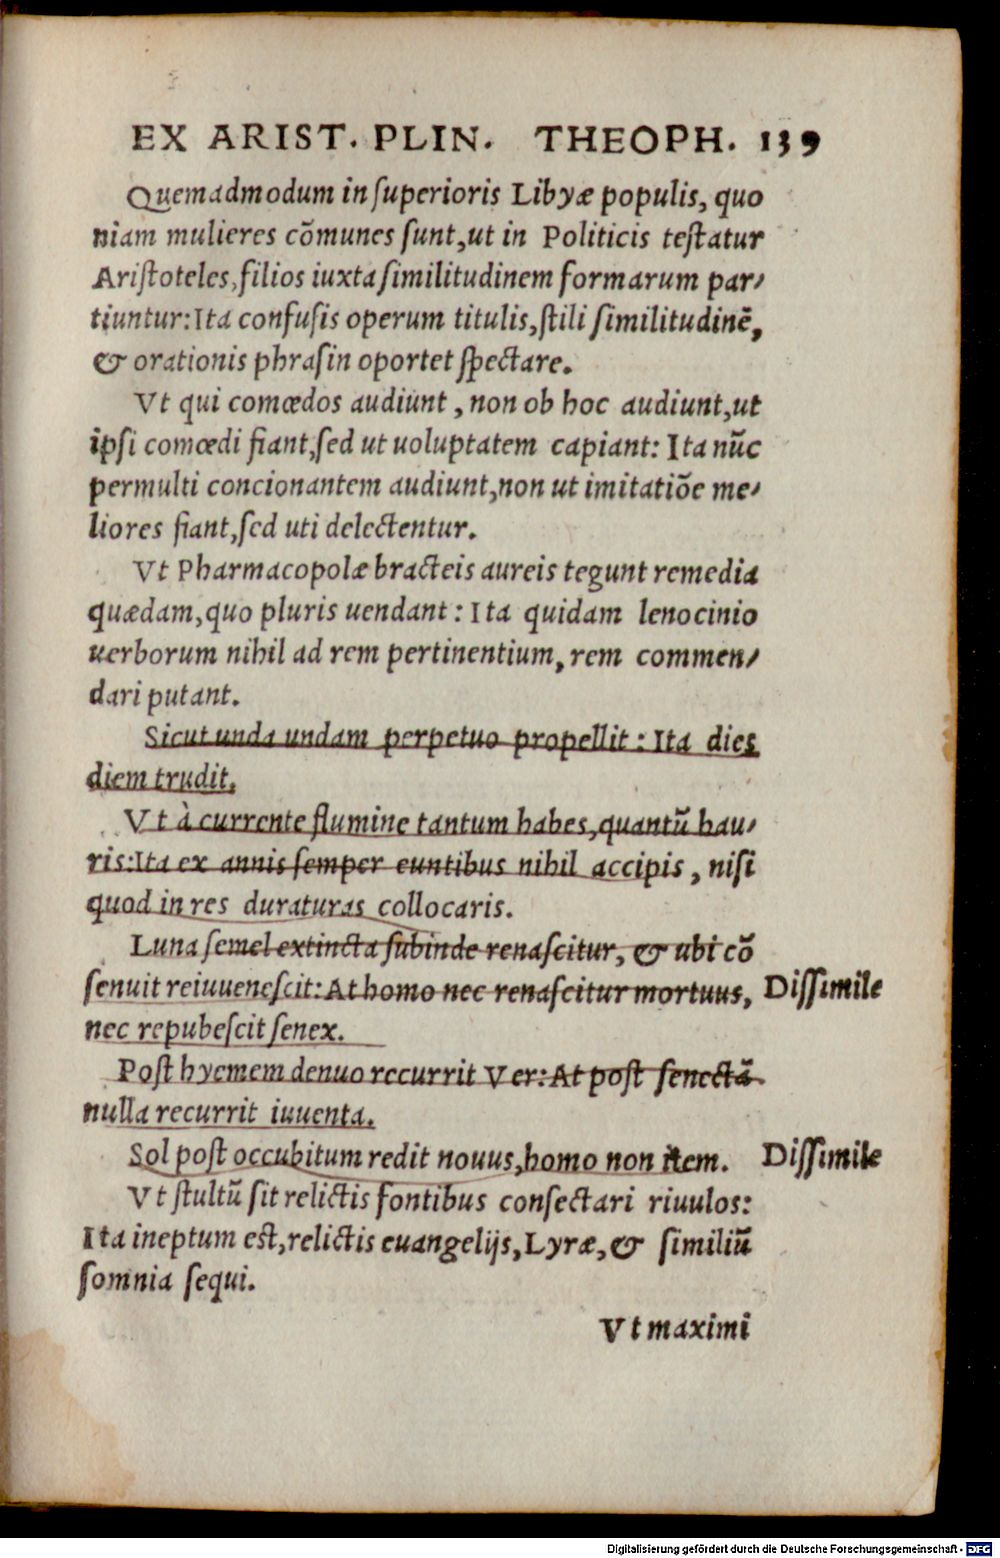 EX ARIST. PLIN. THEOPH. 139
Quemadmodum in superioris Libyæ populis, quo
niam mulieres cõmunes sunt,ut in Politicis testatur
Aristoteles,filios iuxta similitudinem formarum par⸗
tiuntur:Ita confusis operum titulis,stili similitudinẽ,
& orationis phrasin oportet spectare.
Vt qui comœdos audiunt, non ob hoc audiunt,ut
ipsi comœdi fiant,sed ut uoluptatem capiant: Ita nũc
permulti concionantem audiunt,non ut imitatiõe me⸗
liores fiant,sed uti delectentur.
Vt Pharmacopolæ bracteis aureis tegunt remedia
quædam,quo pluris uendant: Ita quidam lenocinio
uerborum nihil ad rem pertinentium, rem commen⸗
dari putant.
Sicut unda undam perpetuo propellit: Ita dies
diem trudit.
Vt à currente flumine tantum habes,quantũ hau⸗
ris:Ita ex annis semper euntibus nihil accipis, nisi
quod in res duraturas collocaris.
Luna semel extincta subinde renascitur, & ubi cõ
senuit reiuuenescit: At homo nec renascitur mortuus, Dissimile
nec repubescit senex.
Post hyemem denuo recurrit Ver: At post senectã
nulla recurrit iuuenta.
Sol post occubitum redit nouus,homo non item. Dissimile
Vt stultũ sit relictis fontibus consectari riuulos:
Ita ineptum est,relictis euangelijs,Lyræ,& similiũ
somnia sequi.
Vt maximi
Digitalisierung gefördert durch die Deutsche Forschungsgemeinschaft - DFG